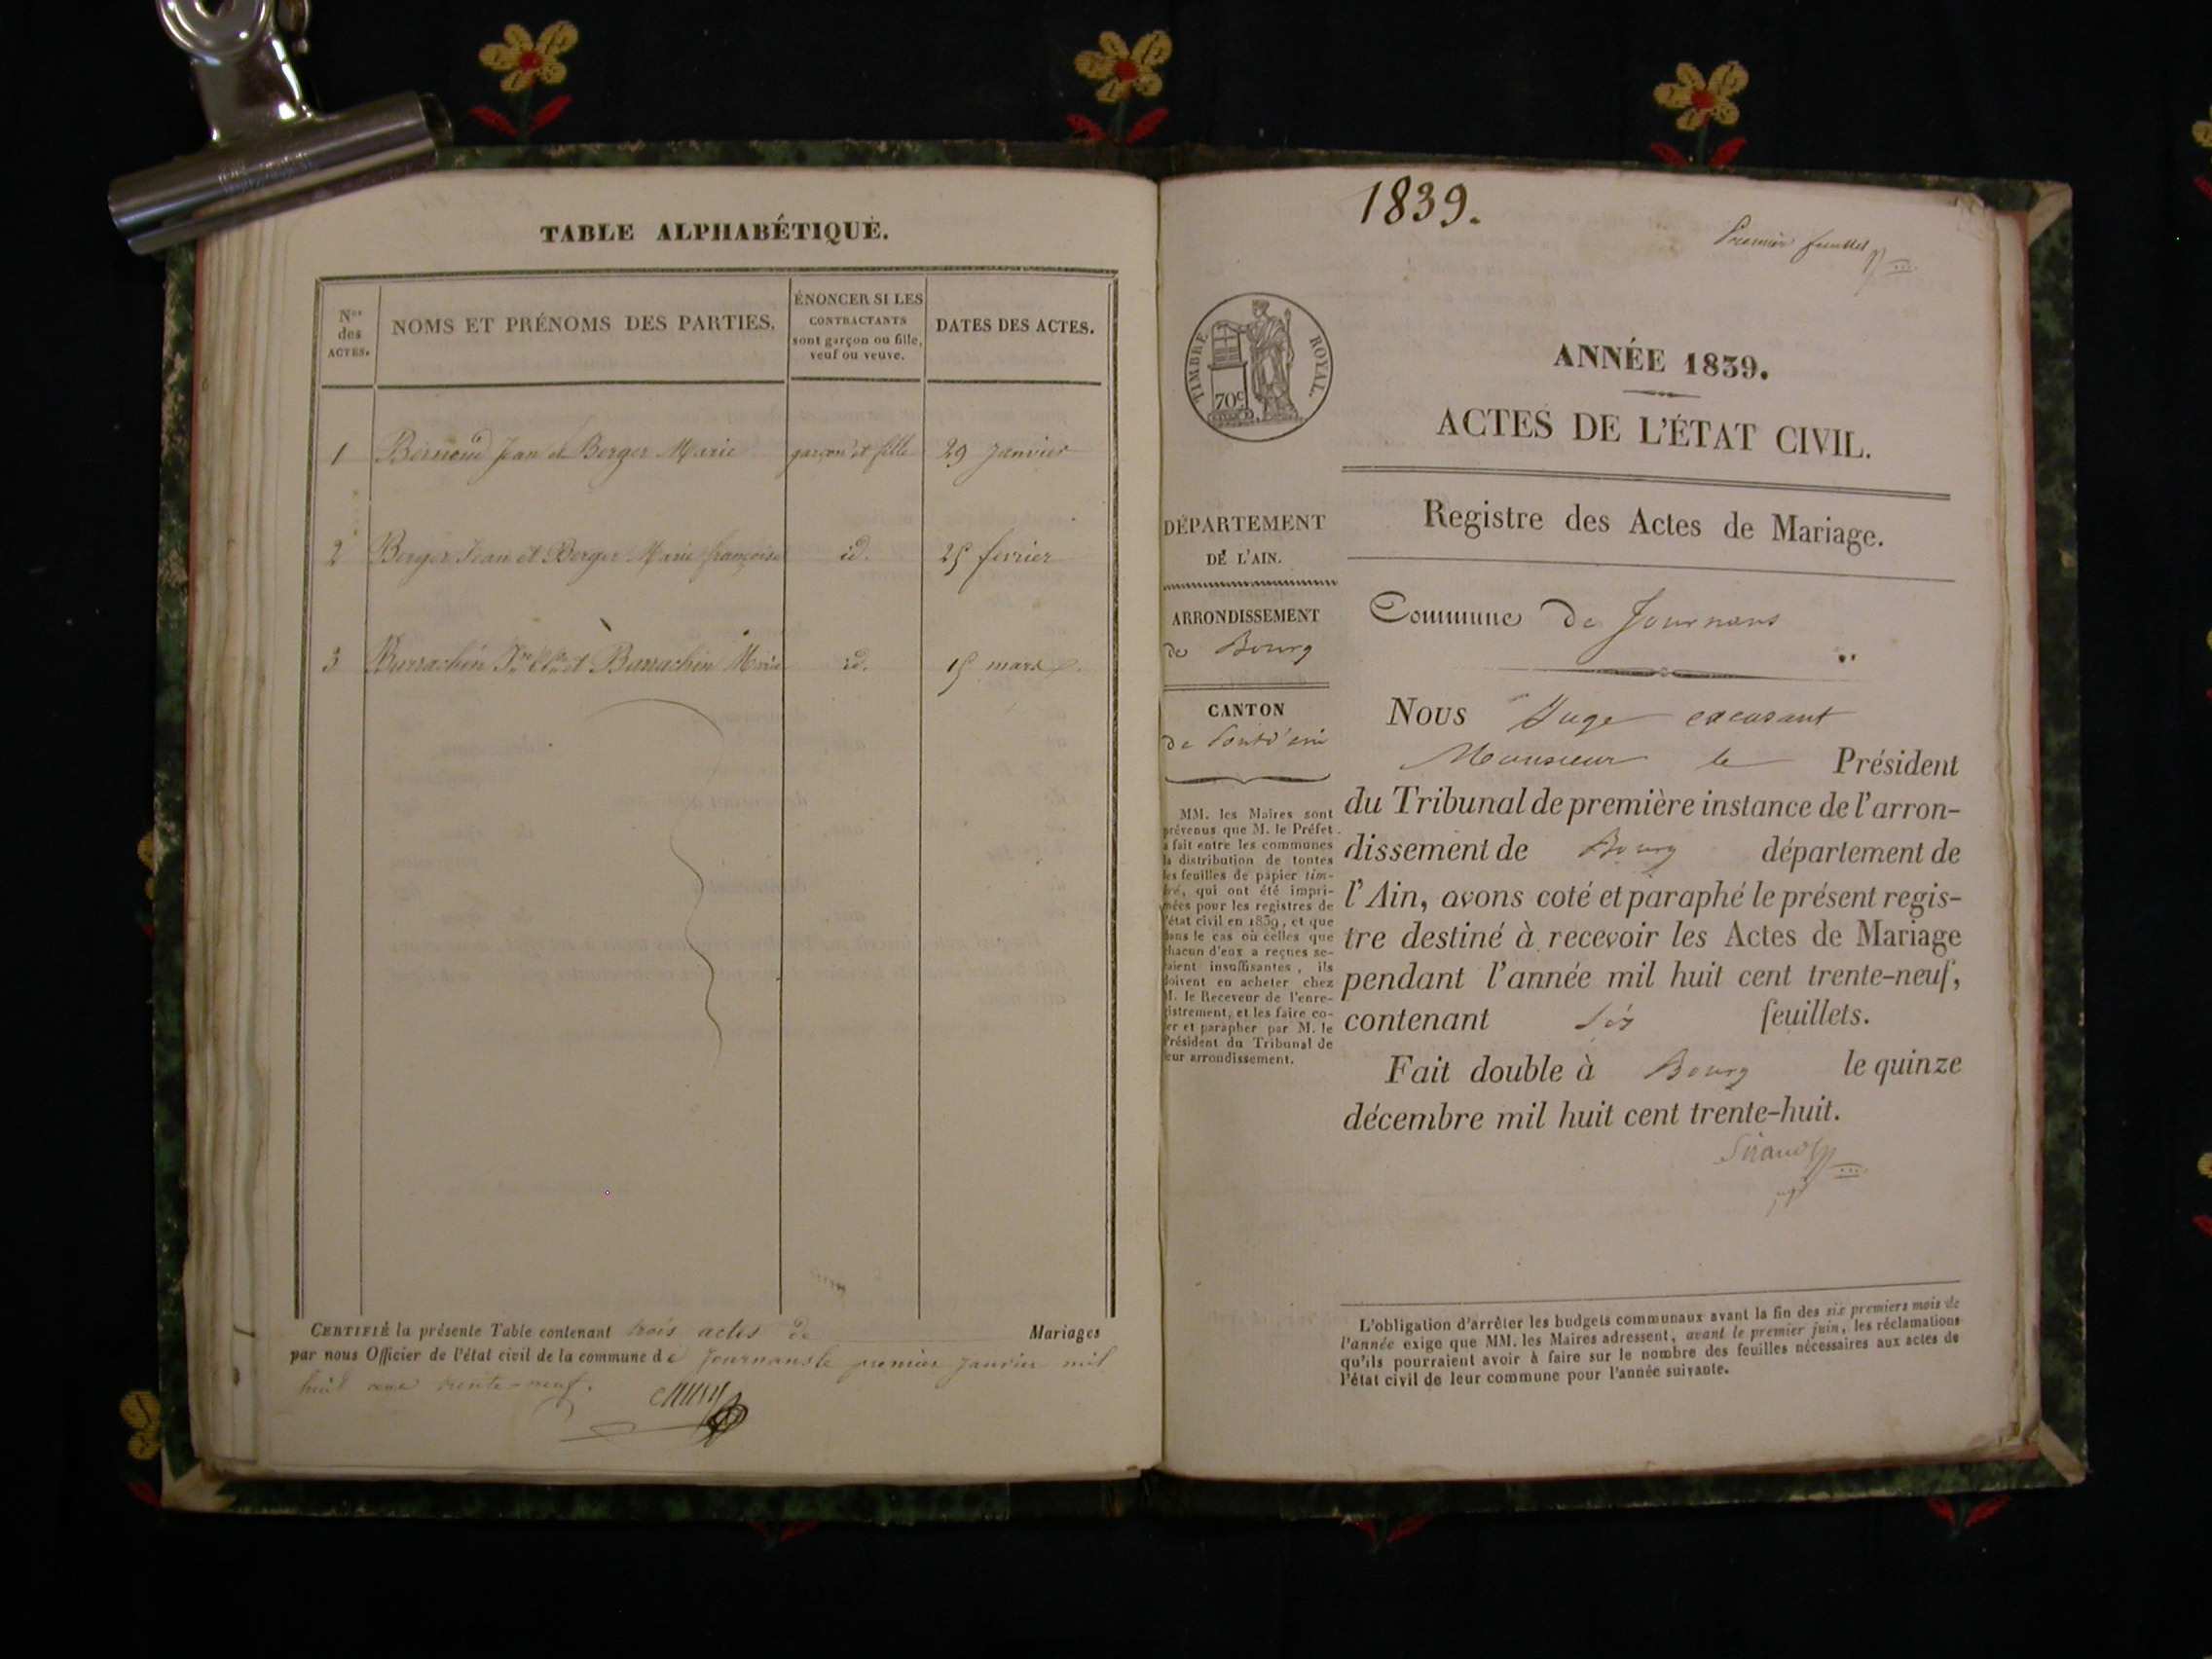 TABLE ALPHABÉTIQUE.
Nos des ACTES.
NOMS ET PRÉNOMS DES PARTIES.
ÉNONCER SI LES CONTRACTANTS sont garçon ou fille, veuf ou veuve.
DATES DES ACTES.
1 Jean et Berger Marie garçon et fille 29 Janvier
2 Berger Jean et Berger Marie françoise id. 25 fevrier
3 Burrachin et Burrachin Marie id. 15 mars
CERTIFIÉ la présente Table contenant trois actes de Mariages
par nous Officier de l'état civil de la commune de Journans le premier Janvier mil
huit cent trente-neuf.
1839.
Premier feuillet
TIMBRE ROYAL.
70c
ANNÉE 1839.
ACTES DE L'ÉTAT CIVIL.
Registre des Actes de Mariage.
DÉPARTEMENT
DE L'AIN.
ARRONDISSEMENT
de Bourg
CANTON
de Pont d'ain
MM. les Maires sont
prévenus que M. le Préfet
a fait entre les communes
la distribution de toutes
les feuilles de papier tim-
bré, qui ont été impri-
mées pour les registres de
l'état civil en 1839, et que
dans le cas où celles que
chacun d'eux a reçues se-
raient insuffisantes, ils
doivent en acheter chez
M. le Receveur de l'enre-
gistrement, et les faire co-
ter et parapher par M. le
Président du Tribunal de
leur arrondissement.
Commune de Journans
Nous Juge excusant
Monsieur le Président
du Tribunal de première instance de l'arron-
dissement de Bourg département de
l'Ain, avons coté et paraphé le présent regis-
tre destiné à recevoir les Actes de Mariage
pendant l'année mil huit cent trente-neuf,
contenant six feuillets.
Fait double à Bourg le quinze
décembre mil huit cent trente-huit.
Sirand
L'obligation d'arrêter les budgets communaux avant la fin des six premiers mois de
l'année exige que MM. les Maires adressent, avant le premier juin, les réclamations
qu'ils pourraient avoir à faire sur le nombre des feuilles nécessaires aux actes de
l'état civil de leur commune pour l'année suivante.